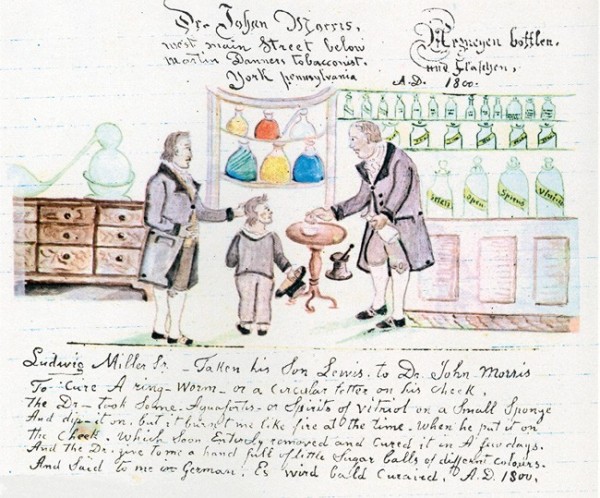 Dr. Johan Morris,
west main Street below
martin Danners tobacconist.
York pennsylvania
Arzneyen bottlen.
und Flaschen,
A.D. 1800.
Open
Spirits
Vitriol
Ludwig Miller Sr. - Taken his Son Lewis. to Dr. John Morris
To Cure A ring-Worm - or a Circular tetter on his cheek,
the Dr - took Some. Aquafortis - or Spirits of vitriol on a Small Sponge
And dip-it on, but it burnt me like fire at the time. When he put it on
the Cheek. Which Soon Entirely removed and Cured it in A few days.
And the Dr. give to me a hand full of little Sugar balls of different Colours.
And Said to me in German. Es wird bald Curaird, A.D. 1800.